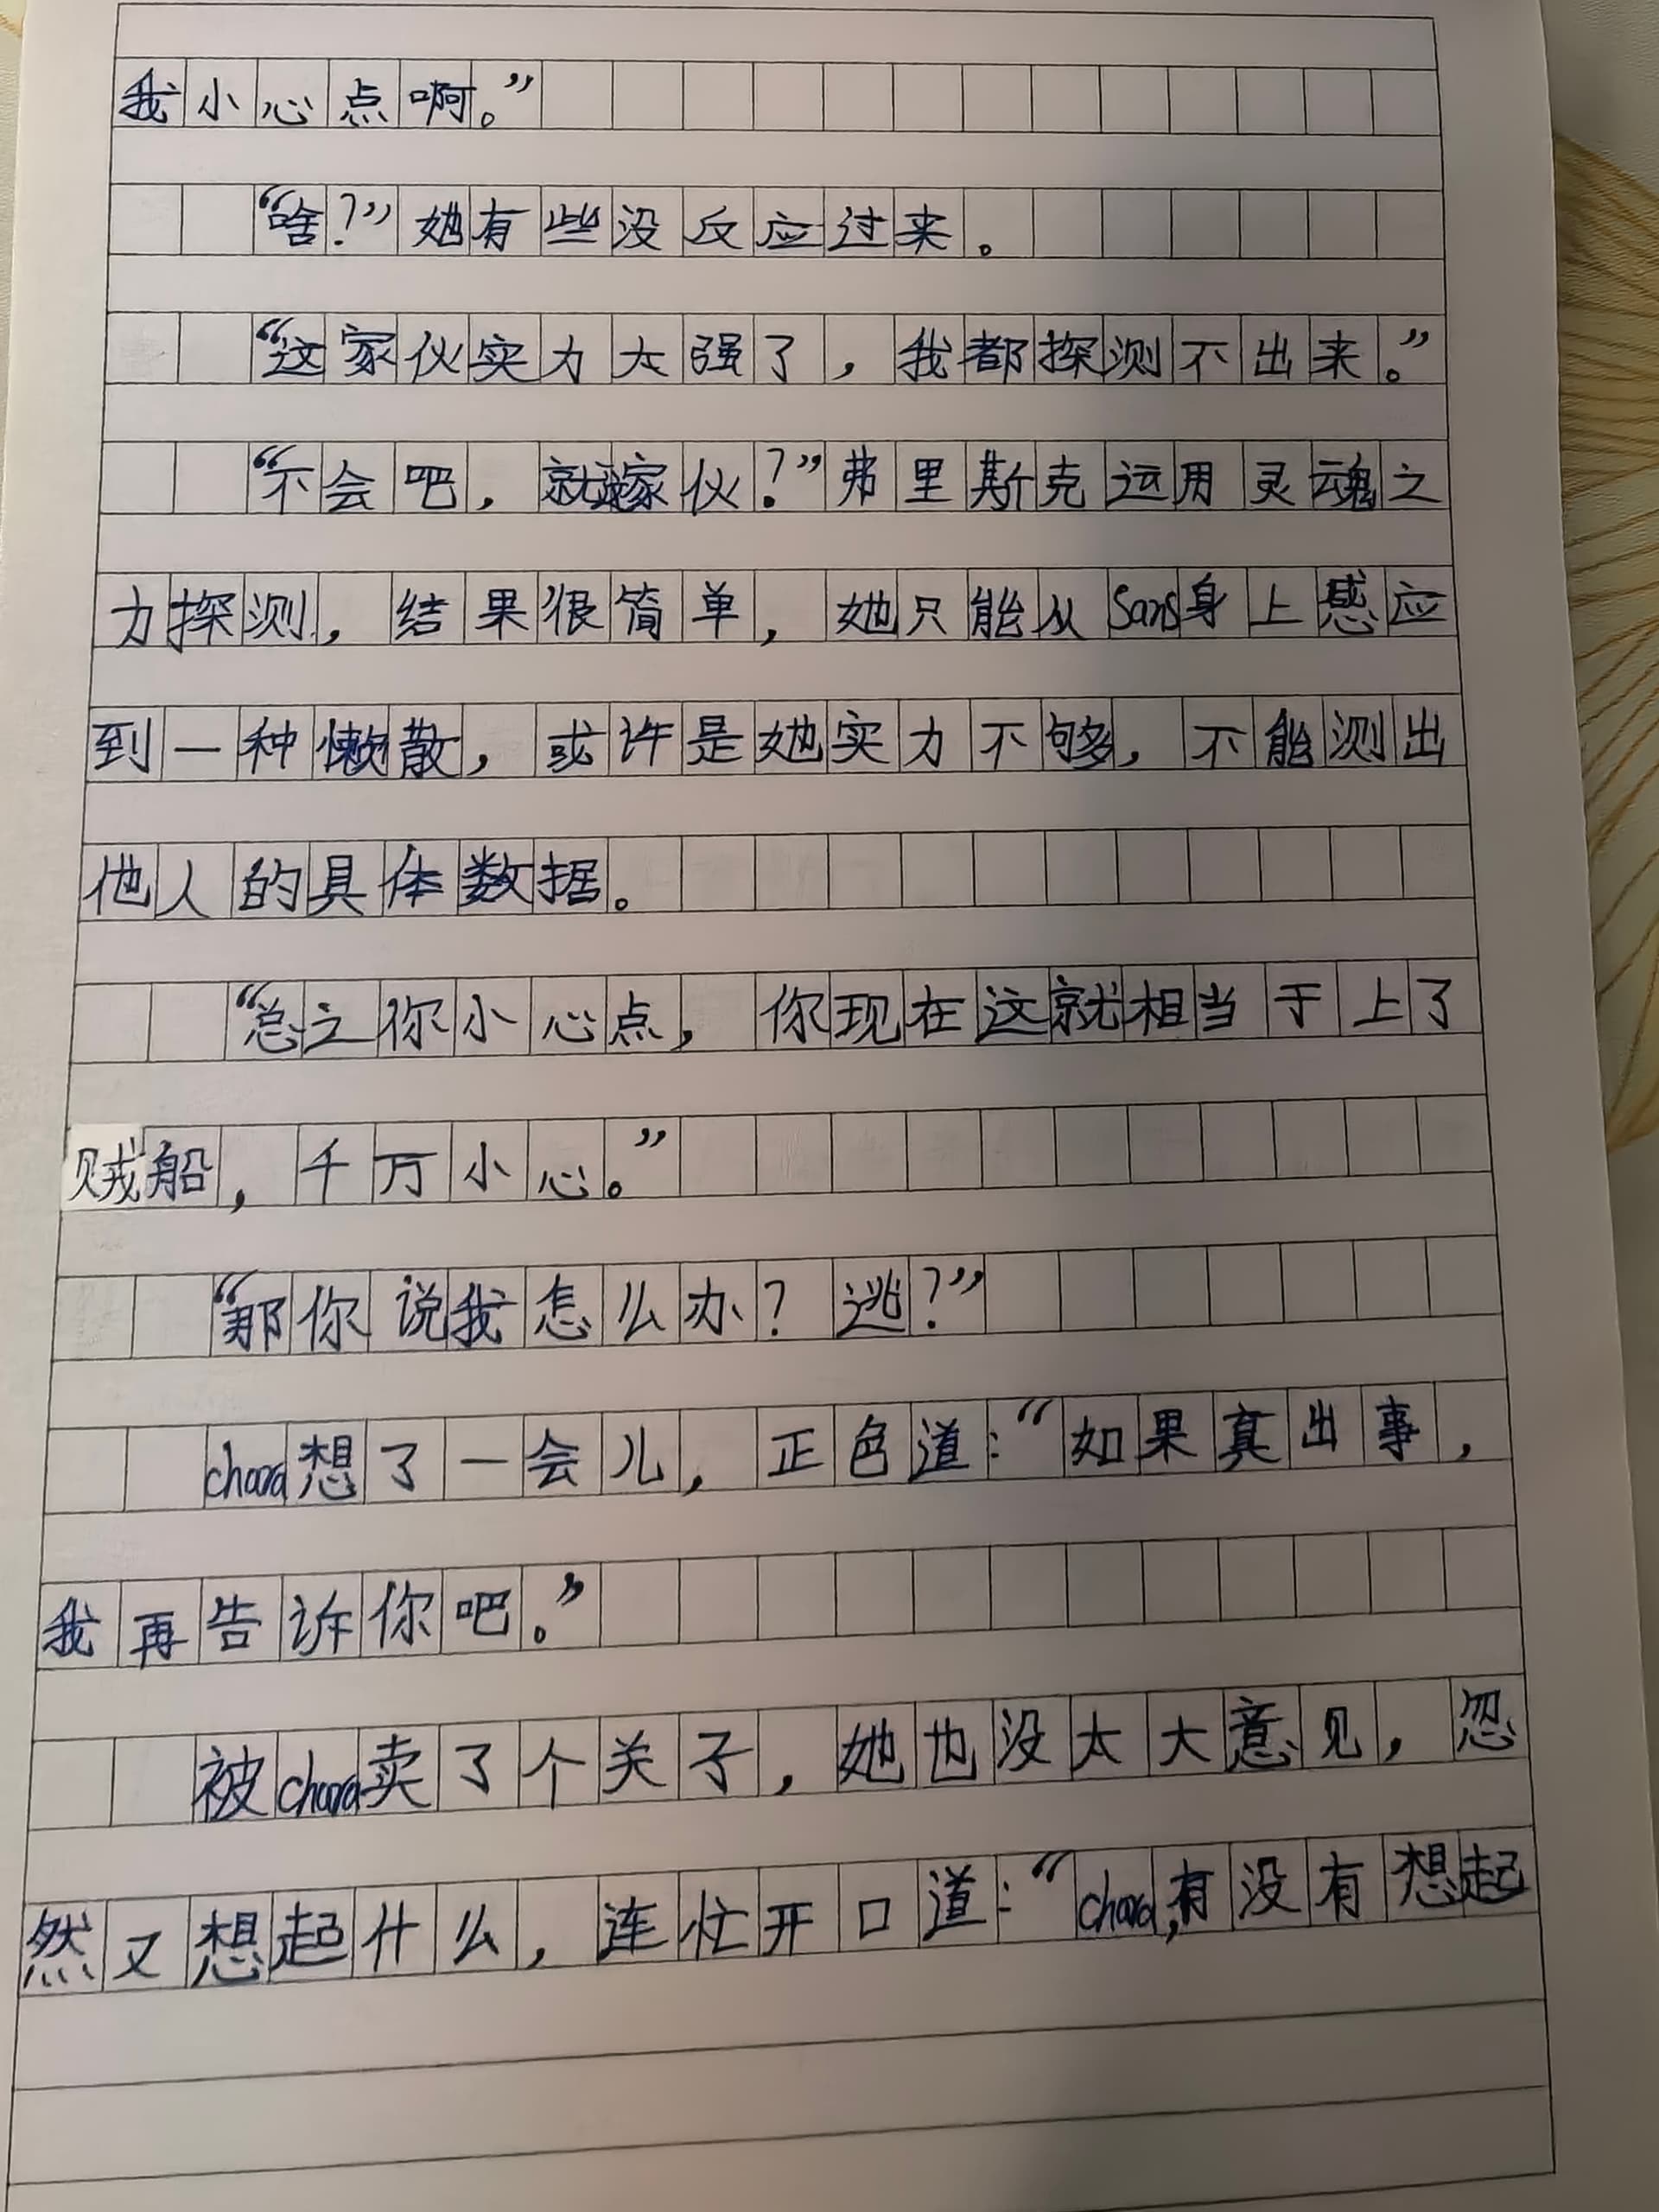 我小心点啊。”
“啥?”她有些没反应过来。
“这家伙实力太强了，我都探测不出来。”
“不会吧，就这家伙?”弗里斯克运用灵魂之
力探测，结果很简单，她只能从Sans身上感应
到一种懒散，或许是她实力不够，不能测出
他人的具体数据。
“总之你小心点，你现在这就相当于上了
贼船，千万小心。”
“那你说我怎么办？逃?”
chara想了一会儿，正色道：“如果真出事，
我再告诉你吧。”
被chara卖了个关子，她也没太大意见，忽
然又想起什么，连忙开口道：“chara,有没有想起